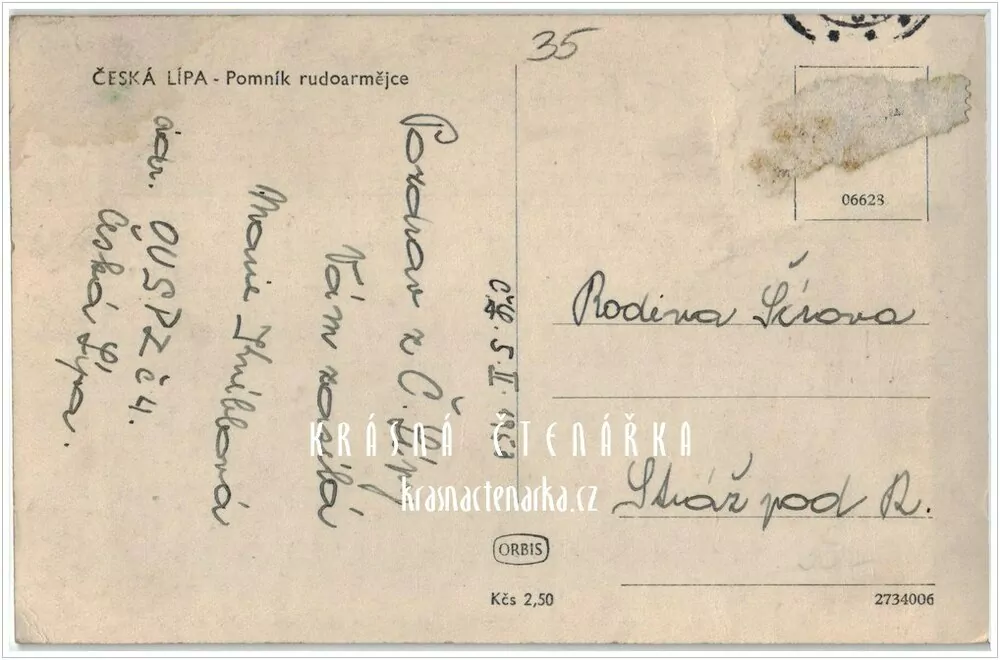 35
ČESKÁ LÍPA - Pomník rudoarmějce
Pozdrav z Č. Lípy
Vám zasílá
Marie
adr. OUSPZ č 4.
Česká Lípa.
Čl. 5. II.
06628
Rodina Šírova
Stráž pod R.
KRÁSNÁ ČTENÁŘKA
krasnactenarka.cz
ORBIS
Kčs 2,50
2734006